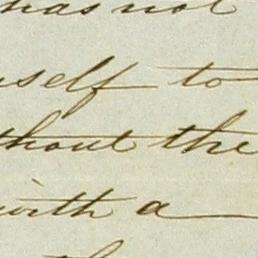 has not
self to
thout the
with a